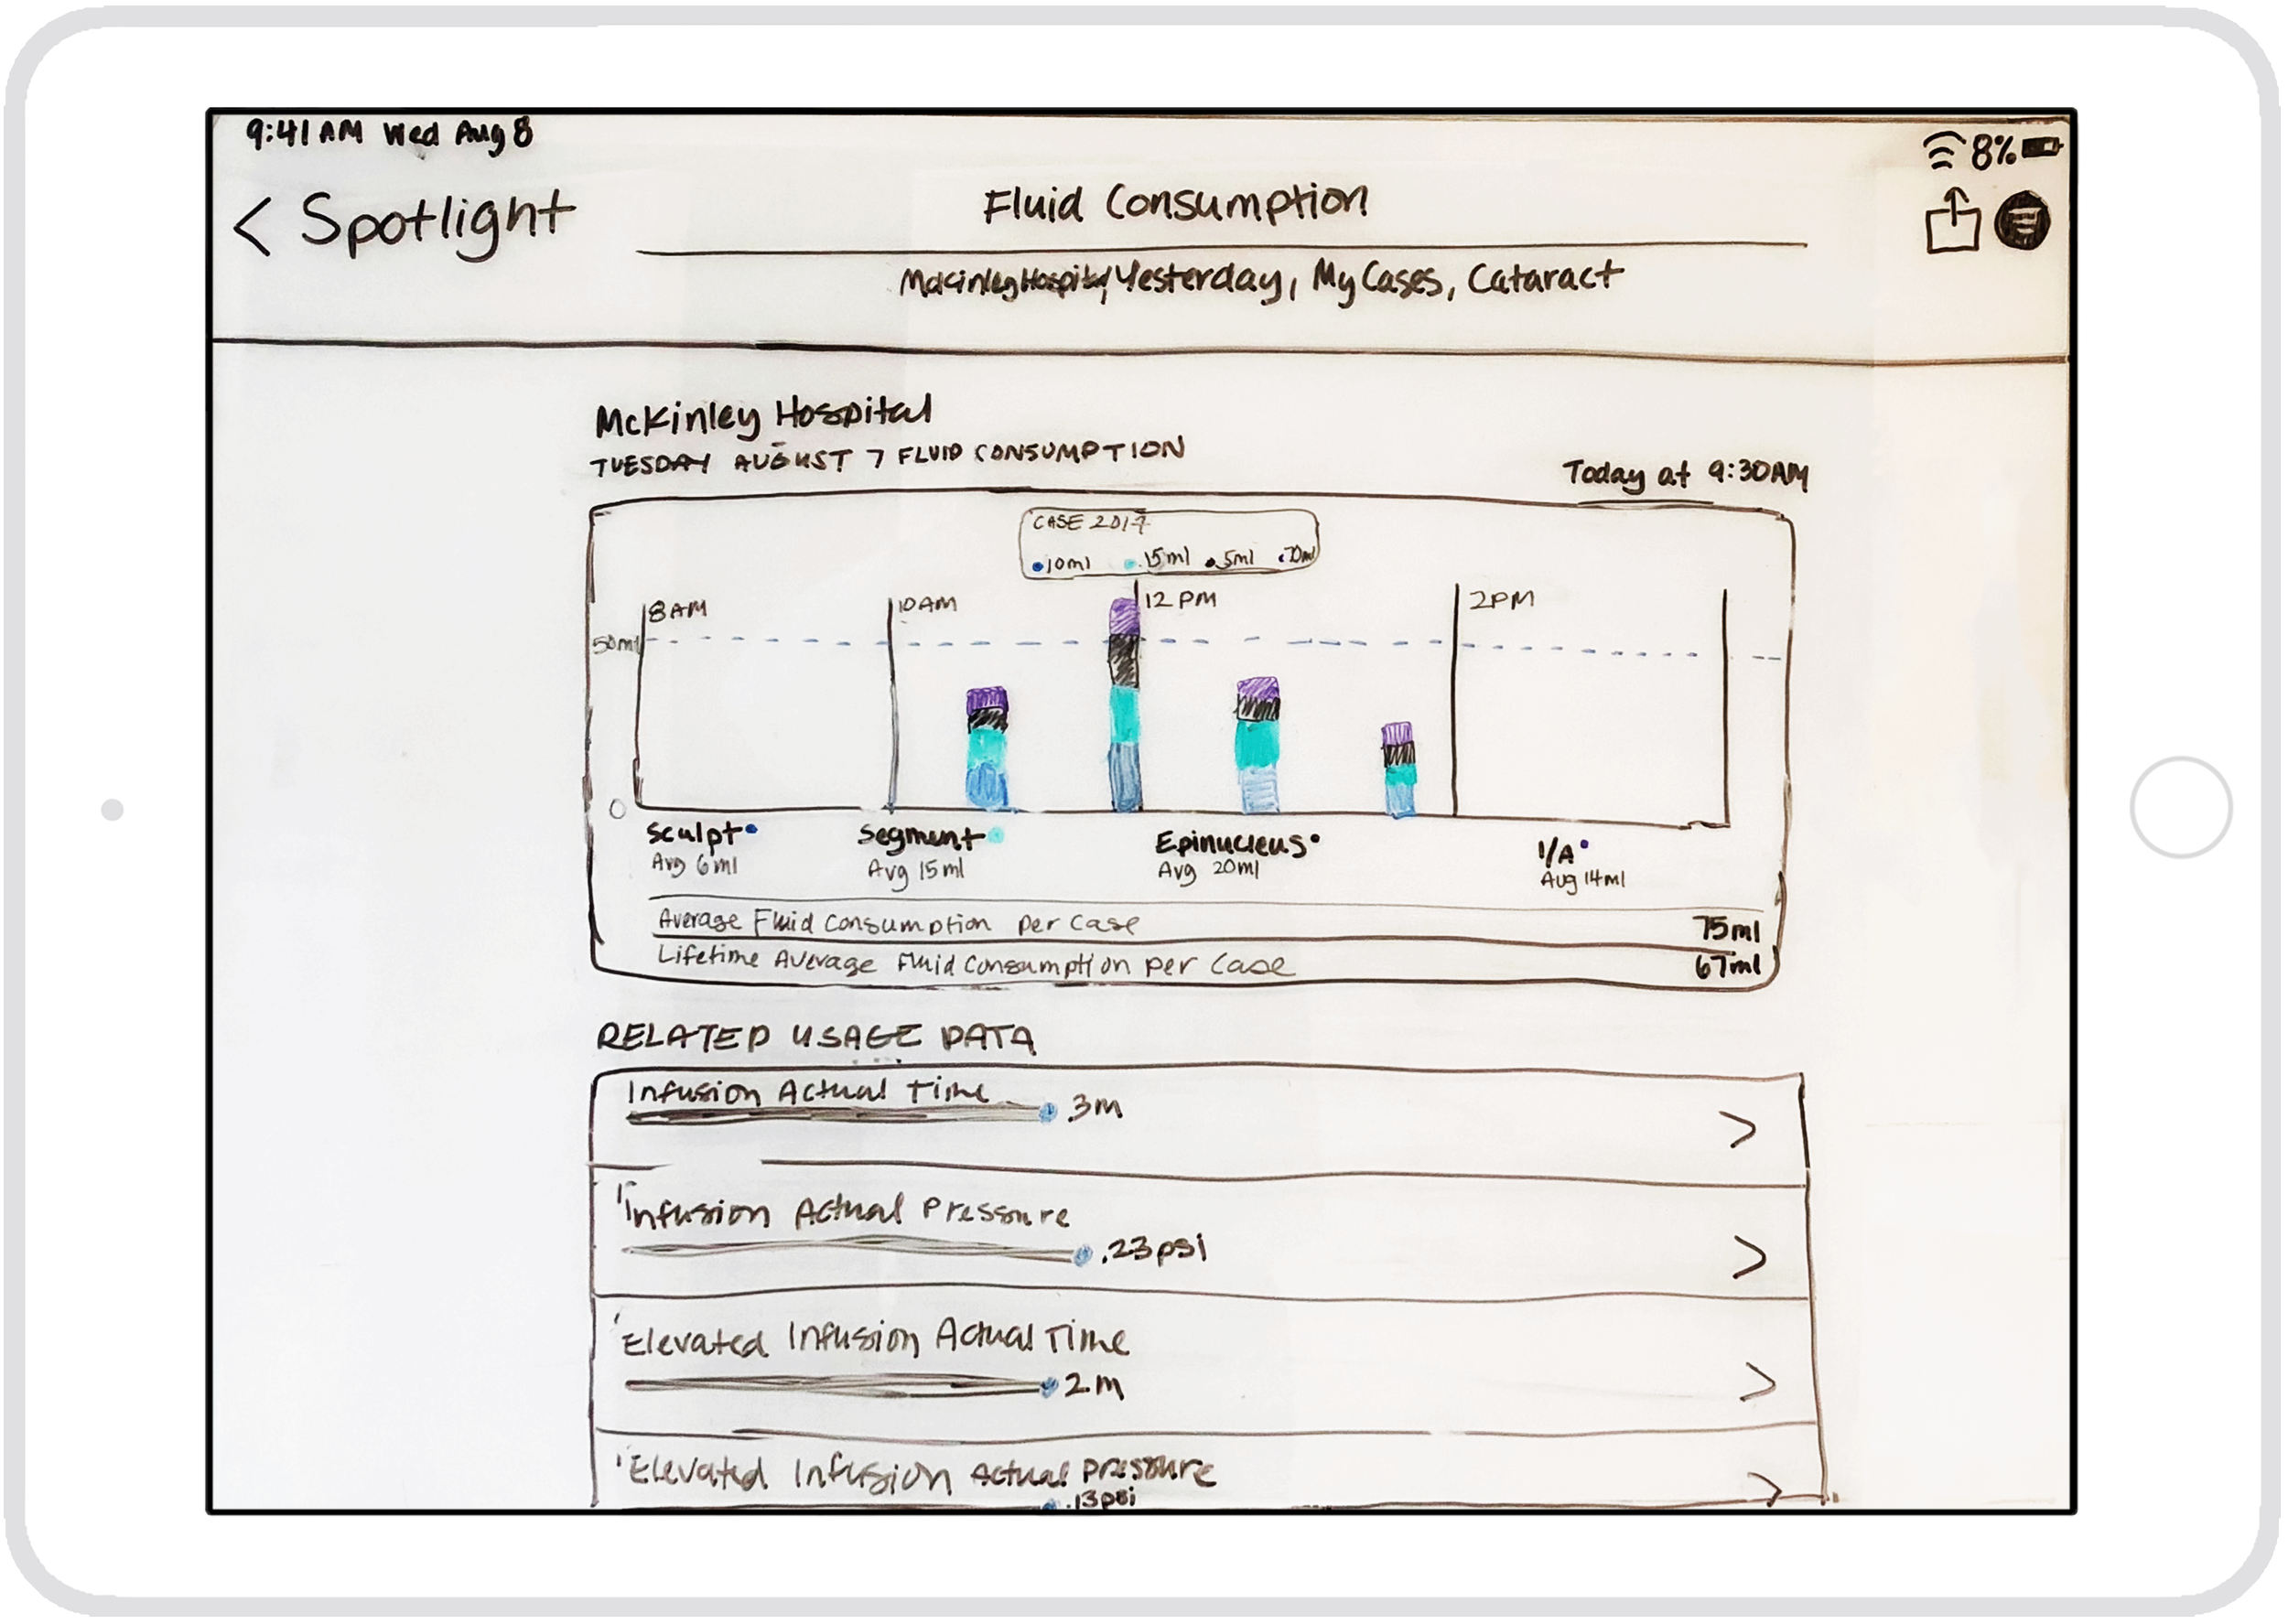 9:41 AM Wed Aug 8
8%
< Spotlight
Fluid Consumption
McKinley Hospital, Yesterday, My Cases, Cataract
McKinley Hospital
TUESDAY AUGUST 7 FLUID CONSUMPTION
Today at 9:30AM
CASE 2017
10ml 15ml 5ml
8AM 10AM 12 PM 2PM
50ml
0
Sculpt Segment Epinucleus I/A
Avg 6ml Avg 15ml Avg 20ml Aug 14ml
Average Fluid Consumption per Case 75ml
Lifetime Average Fluid Consumption per Case 67ml
RELATED USAGE DATA
Infusion Actual Time
3m >
Infusion Actual Pressure
.23psi >
Elevated Infusion Actual Time
2m >
Elevated Infusion Actual Pressure
.13psi >